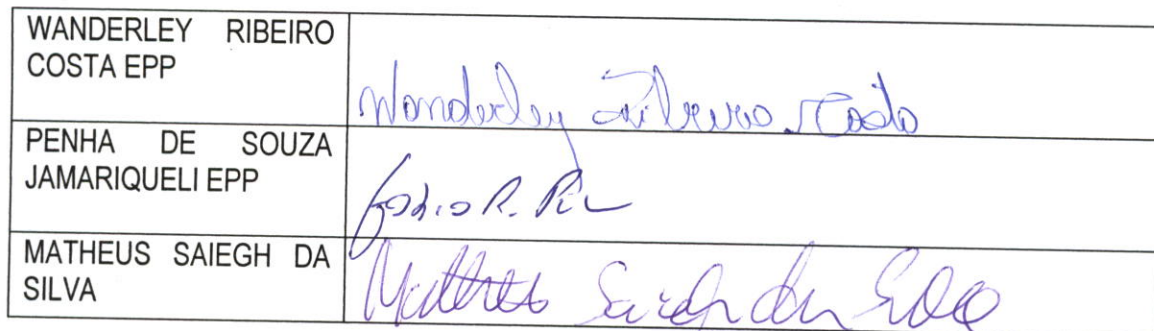 WANDERLEY RIBEIRO
COSTA EPP
Wanderley Ribeiro Costa
PENHA DE SOUZA
JAMARIQUELI EPP
R.
MATHEUS SAIEGH DA
SILVA
Matheus Saiegh da Silva